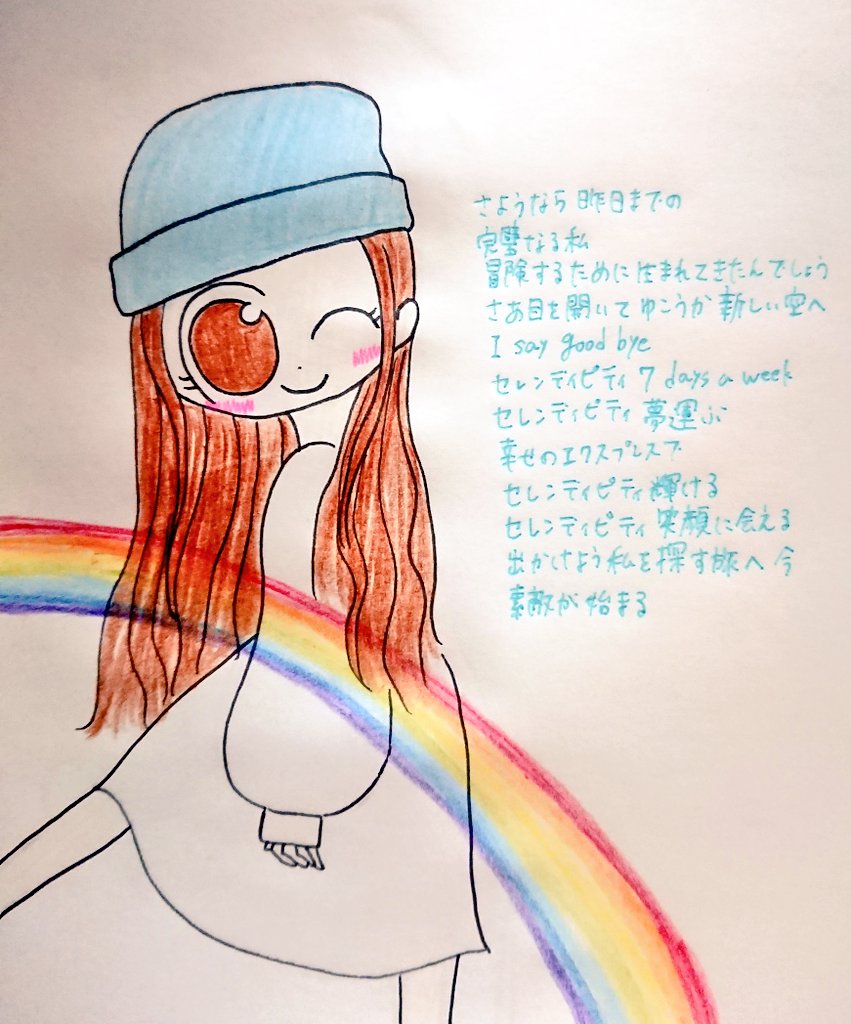 さようなら 昨日までの
完璧なる私
冒険するために 生まれてきたんでしょう
さあ目を開いて ゆこうか 新しい空へ
I say good bye
セレンディピティ 7 days a week
セレンディピティ 夢運ぶ
幸せのエクスプレスで
セレンディピティ 輝ける
セレンディピティ 笑顔に会える
出かけよう 私を探す旅へ 今
素敵が始まる